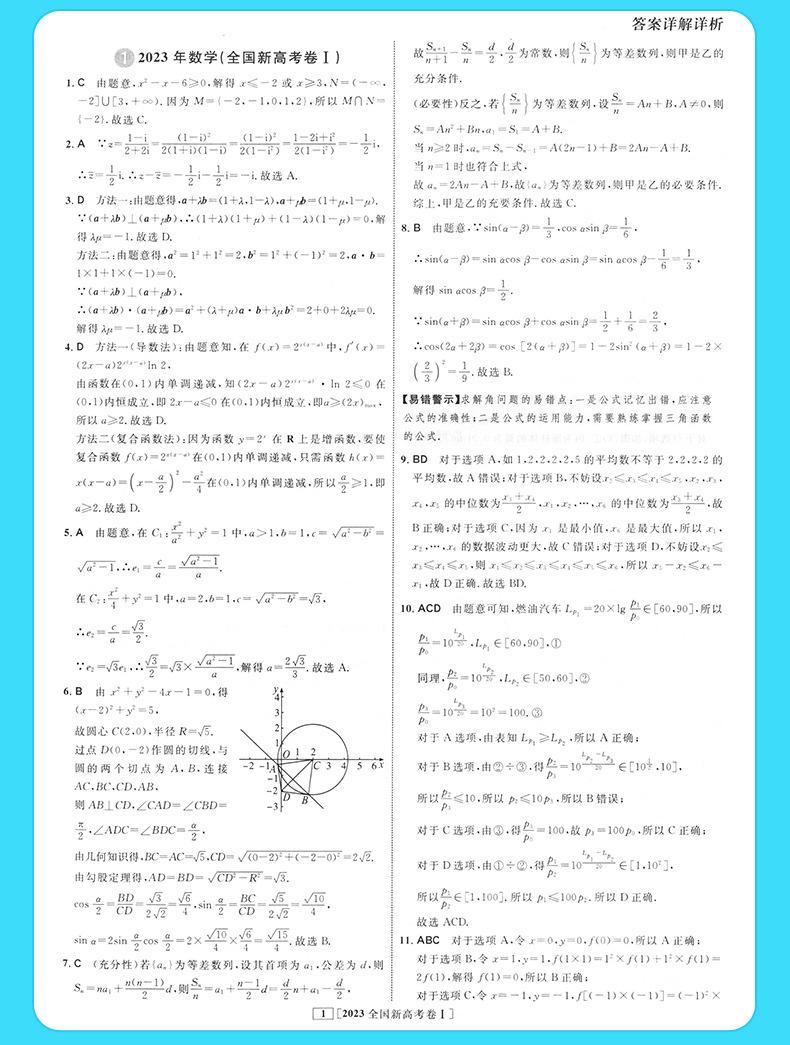 答案详解详析
1 2023 年数学(全国新高考卷Ⅰ)
1. C 由题意,x²-x-6≥0,解得 x≤-2 或 x≥3,N=(-∞,
-2]∪[3,+∞). 因为 M={-2,-1,0,1,2},所以 M∩N=
{-2}. 故选 C.
2. A ∵z=(1-i)/(2+2i)=(1-i)²/(2(1+i)(1-i))=(1-i)²/(2(1-i²))=(1-2i+i²)/(2(1-i²))=-1/2 i,
∴z̄=1/2 i. ∴z-z̄=-1/2 i-1/2 i=-i. 故选 A.
3. D 方法一:由题意得,a+λb=(1+λ,1-λ),a+μb=(1+μ,1-μ).
∵(a+λb)⊥(a+μb),∴(1+λ)(1+μ)+(1-λ)(1-μ)=0,解
得 λμ=-1. 故选 D.
方法二:由题意得,a²=1²+1²=2,b²=1²+(-1)²=2,a·b=
1×1+1×(-1)=0.
∵(a+λb)⊥(a+μb),
∴(a+λb)·(a+μb)=a²+(λ+μ)a·b+λμb²=2+0+2λμ=0.
解得 λμ=-1. 故选 D.
4. D 方法一(导数法):由题意知,在 f(x)=2^(x(x-a))中,f′(x)=
(2x-a)2^(x(x-a)) ln 2,
由函数在(0,1)内单调递减,知(2x-a)2^(x(x-a))·ln 2≤0 在
(0,1)内恒成立,即 2x-a≤0 在(0,1)内恒成立,即a≥(2x)max,
所以 a≥2. 故选 D.
方法二(复合函数法):因为函数 y=2ˣ 在 R 上是增函数,要使
复合函数 f(x)=2^(x(x-a))在(0,1)内单调递减,只需函数 h(x)=
x(x-a)=(x-a/2)²-a²/4在(0,1)内单调递减,所以a/2≥1,即
a≥2. 故选 D.
5. A 由题意,在 C₁:x²/a²+y²=1 中,a>1,b=1,c=√(a²-b²)=
√(a²-1),∴e₁=c/a=√(a²-1)/a.
在 C₂:x²/4+y²=1 中,a=2,b=1,c=√(a²-b²)=√3,
∴e₂=c/a=√3/2.
∵e₂=√3e₁,∴√3/2=√3×√(a²-1)/a,解得 a=2√3/3. 故选 A.
6. B 由 x²+y²-4x-1=0,得
(x-2)²+y²=5,
故圆心 C(2,0),半径 R=√5.
过点 D(0,-2)作圆的切线,与
圆的两个切点为 A,B,连接
AC,BC,CD,AB,
则 AB⊥CD,∠CAD=∠CBD=
π/2,∠ADC=∠BDC=α/2,
y
4
3
2
1
-2 -1 O 1 2 3 4 5 6 x
A C
-1
-2 D B
-3
由几何知识得,BC=AC=√5,CD=√((0-2)²+(-2-0)²)=2√2.
由勾股定理得,AD=BD=√(CD²-R²)=√3.
cos α/2=BD/CD=√3/(2√2)=√6/4,sin α/2=BC/CD=√5/(2√2)=√10/4,
sin α=2sin α/2 cos α/2=2×√10/4×√6/4=√15/4. 故选 B.
7. C (充分性)若{aₙ}为等差数列,设其首项为 a₁,公差为 d,则
Sₙ=na₁+n(n-1)/2 d,则Sₙ/n=a₁+(n-1)/2 d=d/2 n+a₁-d/2,
故Sₙ₊₁/(n+1)-Sₙ/n=d/2,d/2为常数,则{Sₙ/n}为等差数列,则甲是乙的
充分条件.
(必要性)反之,若{Sₙ/n}为等差数列,设Sₙ/n=An+B,A≠0,则
Sₙ=An²+Bn,a₁=S₁=A+B.
当 n≥2 时,aₙ=Sₙ-Sₙ₋₁=A(2n-1)+B=2An-A+B.
当 n=1 时也符合上式,
故 aₙ=2An-A+B,故{aₙ}为等差数列,则甲是乙的必要条件.
综上,甲是乙的充要条件. 故选 C.
8. B 由题意,∵sin(α-β)=1/3,cos αsin β=1/6,
∴sin(α-β)=sin αcos β-cos αsin β=sin αcos β-1/6=1/3,
解得 sin αcos β=1/2.
∵sin(α+β)=sin αcos β+cos αsin β=1/2+1/6=2/3,
∴cos(2α+2β)=cos [2(α+β)]=1-2sin²(α+β)=1-2×
(2/3)²=1/9. 故选 B.
【易错警示】求解角问题的易错点:一是公式记忆出错,应注意
公式的准确性;二是公式的运用能力,需要熟练掌握三角函数
的公式.
9. BD 对于选项 A,如 1,2,2,2,2,5 的平均数不等于 2,2,2,2 的
平均数,故 A 错误;对于选项 B,不妨设x₂≤x₃≤x₄≤x₅,x₂,x₃,
x₄,x₅ 的中位数为(x₃+x₄)/2,x₁,x₂,…,x₆ 的中位数为(x₃+x₄)/2,故
B 正确;对于选项 C,因为 x₁ 是最小值,x₆ 是最大值,所以 x₁,
x₂,…,x₆ 的数据波动更大,故 C 错误;对于选项 D,不妨设x₂≤
x₃≤x₄≤x₅,则 x₁≤x₂≤x₃≤x₄≤x₅≤x₆,所以 x₅-x₂≤x₆-
x₁,故 D 正确. 故选 BD.
10. ACD 由题意可知,燃油汽车 Lₚ₁=20×lg p₁/p₀∈[60,90],所以
p₁/p₀=10^(Lₚ₁/20),Lₚ₁∈[60,90],①
同理,p₂/p₀=10^(Lₚ₂/20),Lₚ₂∈[50,60],②
p₃/p₀=10^(40/20)=10²=100. ③
对于 A 选项,由表知 Lₚ₁≥Lₚ₂,所以 A 正确;
对于 B 选项,由②÷③,得p₂/p₃=10^((Lₚ₂-Lₚ₃)/20)∈[10^(1/2),10],
所以p₂/p₃≤10,所以 p₂≤10p₃,所以 B 错误;
对于 C 选项,由③,得p₃/p₀=100,故 p₃=100p₀,所以 C 正确;
对于 D 选项,由①÷②,得p₁/p₂=10^((Lₚ₁-Lₚ₂)/20)∈[1,10²],
所以p₁/p₂∈[1,100]. 所以 p₁≤100p₂. 所以 D 正确.
故选 ACD.
11. ABC 对于选项 A,令 x=0,y=0,f(0)=0,所以 A 正确;
对于选项 B,令 x=1,y=1,f(1×1)=1²×f(1)+1²×f(1)=
2f(1),解得 f(1)=0,所以 B 正确;
对于选项 C,令 x=-1,y=-1,f[(-1)×(-1)]=(-1)²×
1 [2023 全国新高考卷Ⅰ]